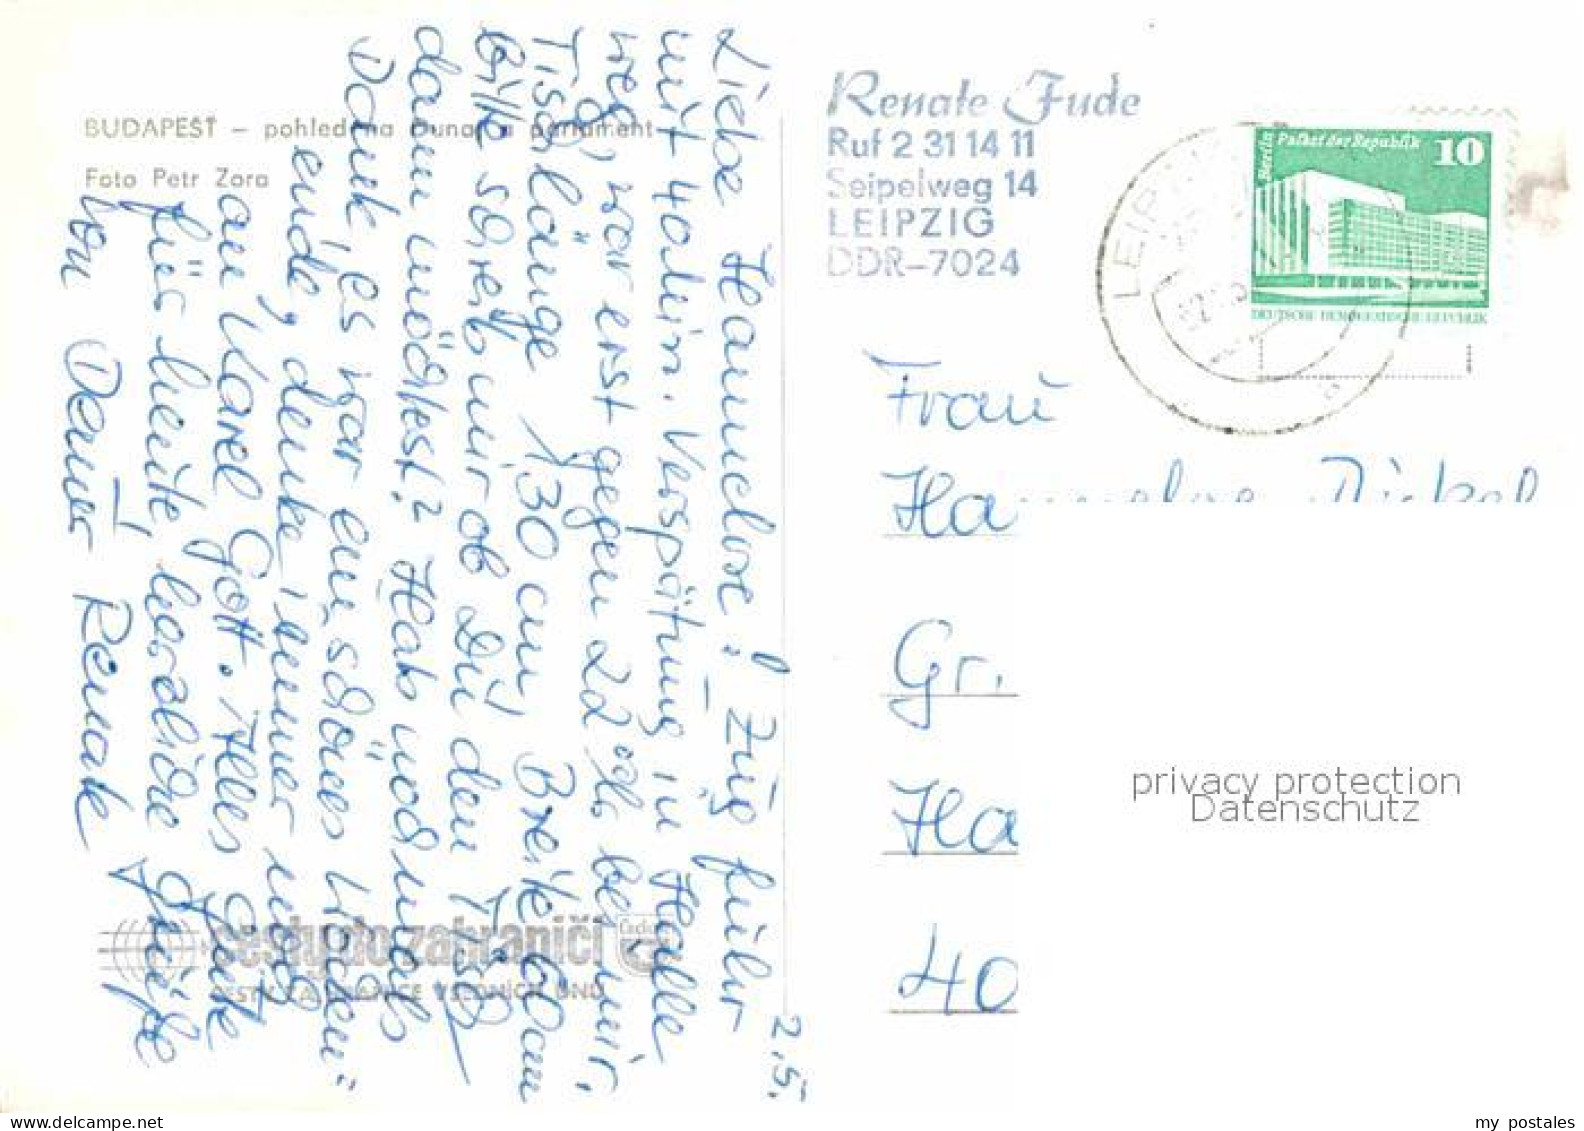 BUDAPEST – pohled na Dunaj a parlament
Foto Petr Zora
2.5.
Liebe Hannelore! Zug fuhr
mit 40 Min. Verspätung in Halle
weg, war erst gegen 22 Uhr bei mir.
Tischlänge 1,30 cm, Breite 60cm
Bitte schreib mir ob Du den Tisch
dann möchtest? Hab nochmals
Dank, es war ein schönes Wochen-
ende, denke immer noch
an Karel Gott. Alles Gute
für heute herzliche Grüße
von Deiner Renate
cesty do zahraničí
Čedok
CESTY ZA HRANICE VŠEDNÍCH DNŮ
Renate Jude
Ruf 2 31 14 11
Seipelweg 14
LEIPZIG
DDR–7024
LEIPZIG
Berlin Palast der Republik 10
DEUTSCHE DEMOKRATISCHE REPUBLIK
Frau
Hannelore Dickel
Gr.
Ha
40
privacy protection
Datenschutz
my postales